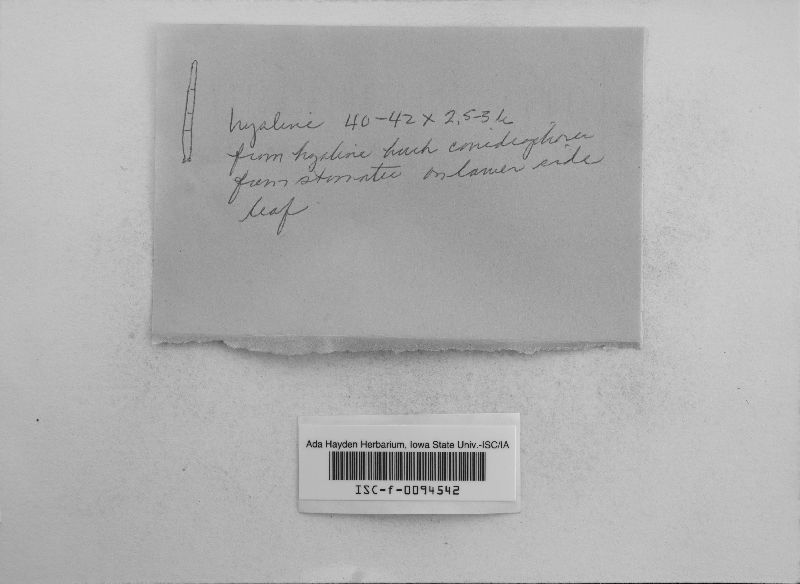 hyaline 40-42 x 2.5-3 µ
from hyaline conidiophores
from stomata on lower side
leaf
Ada Hayden Herbarium, Iowa State Univ.-ISC/IA
ISC-f-0094542